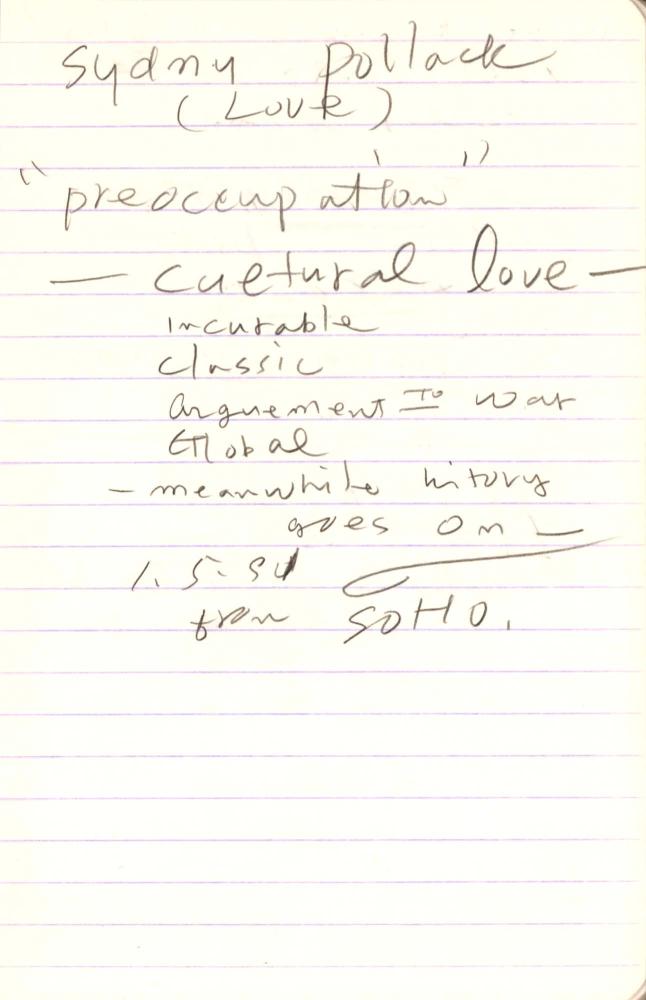 Sydny Pollack
(Love)
"preoccupation"
— cultural love —
Incurable
Classic
Arguement To war
Global
- meanwhile history
goes on —
1. 5. 94
from SOHO.